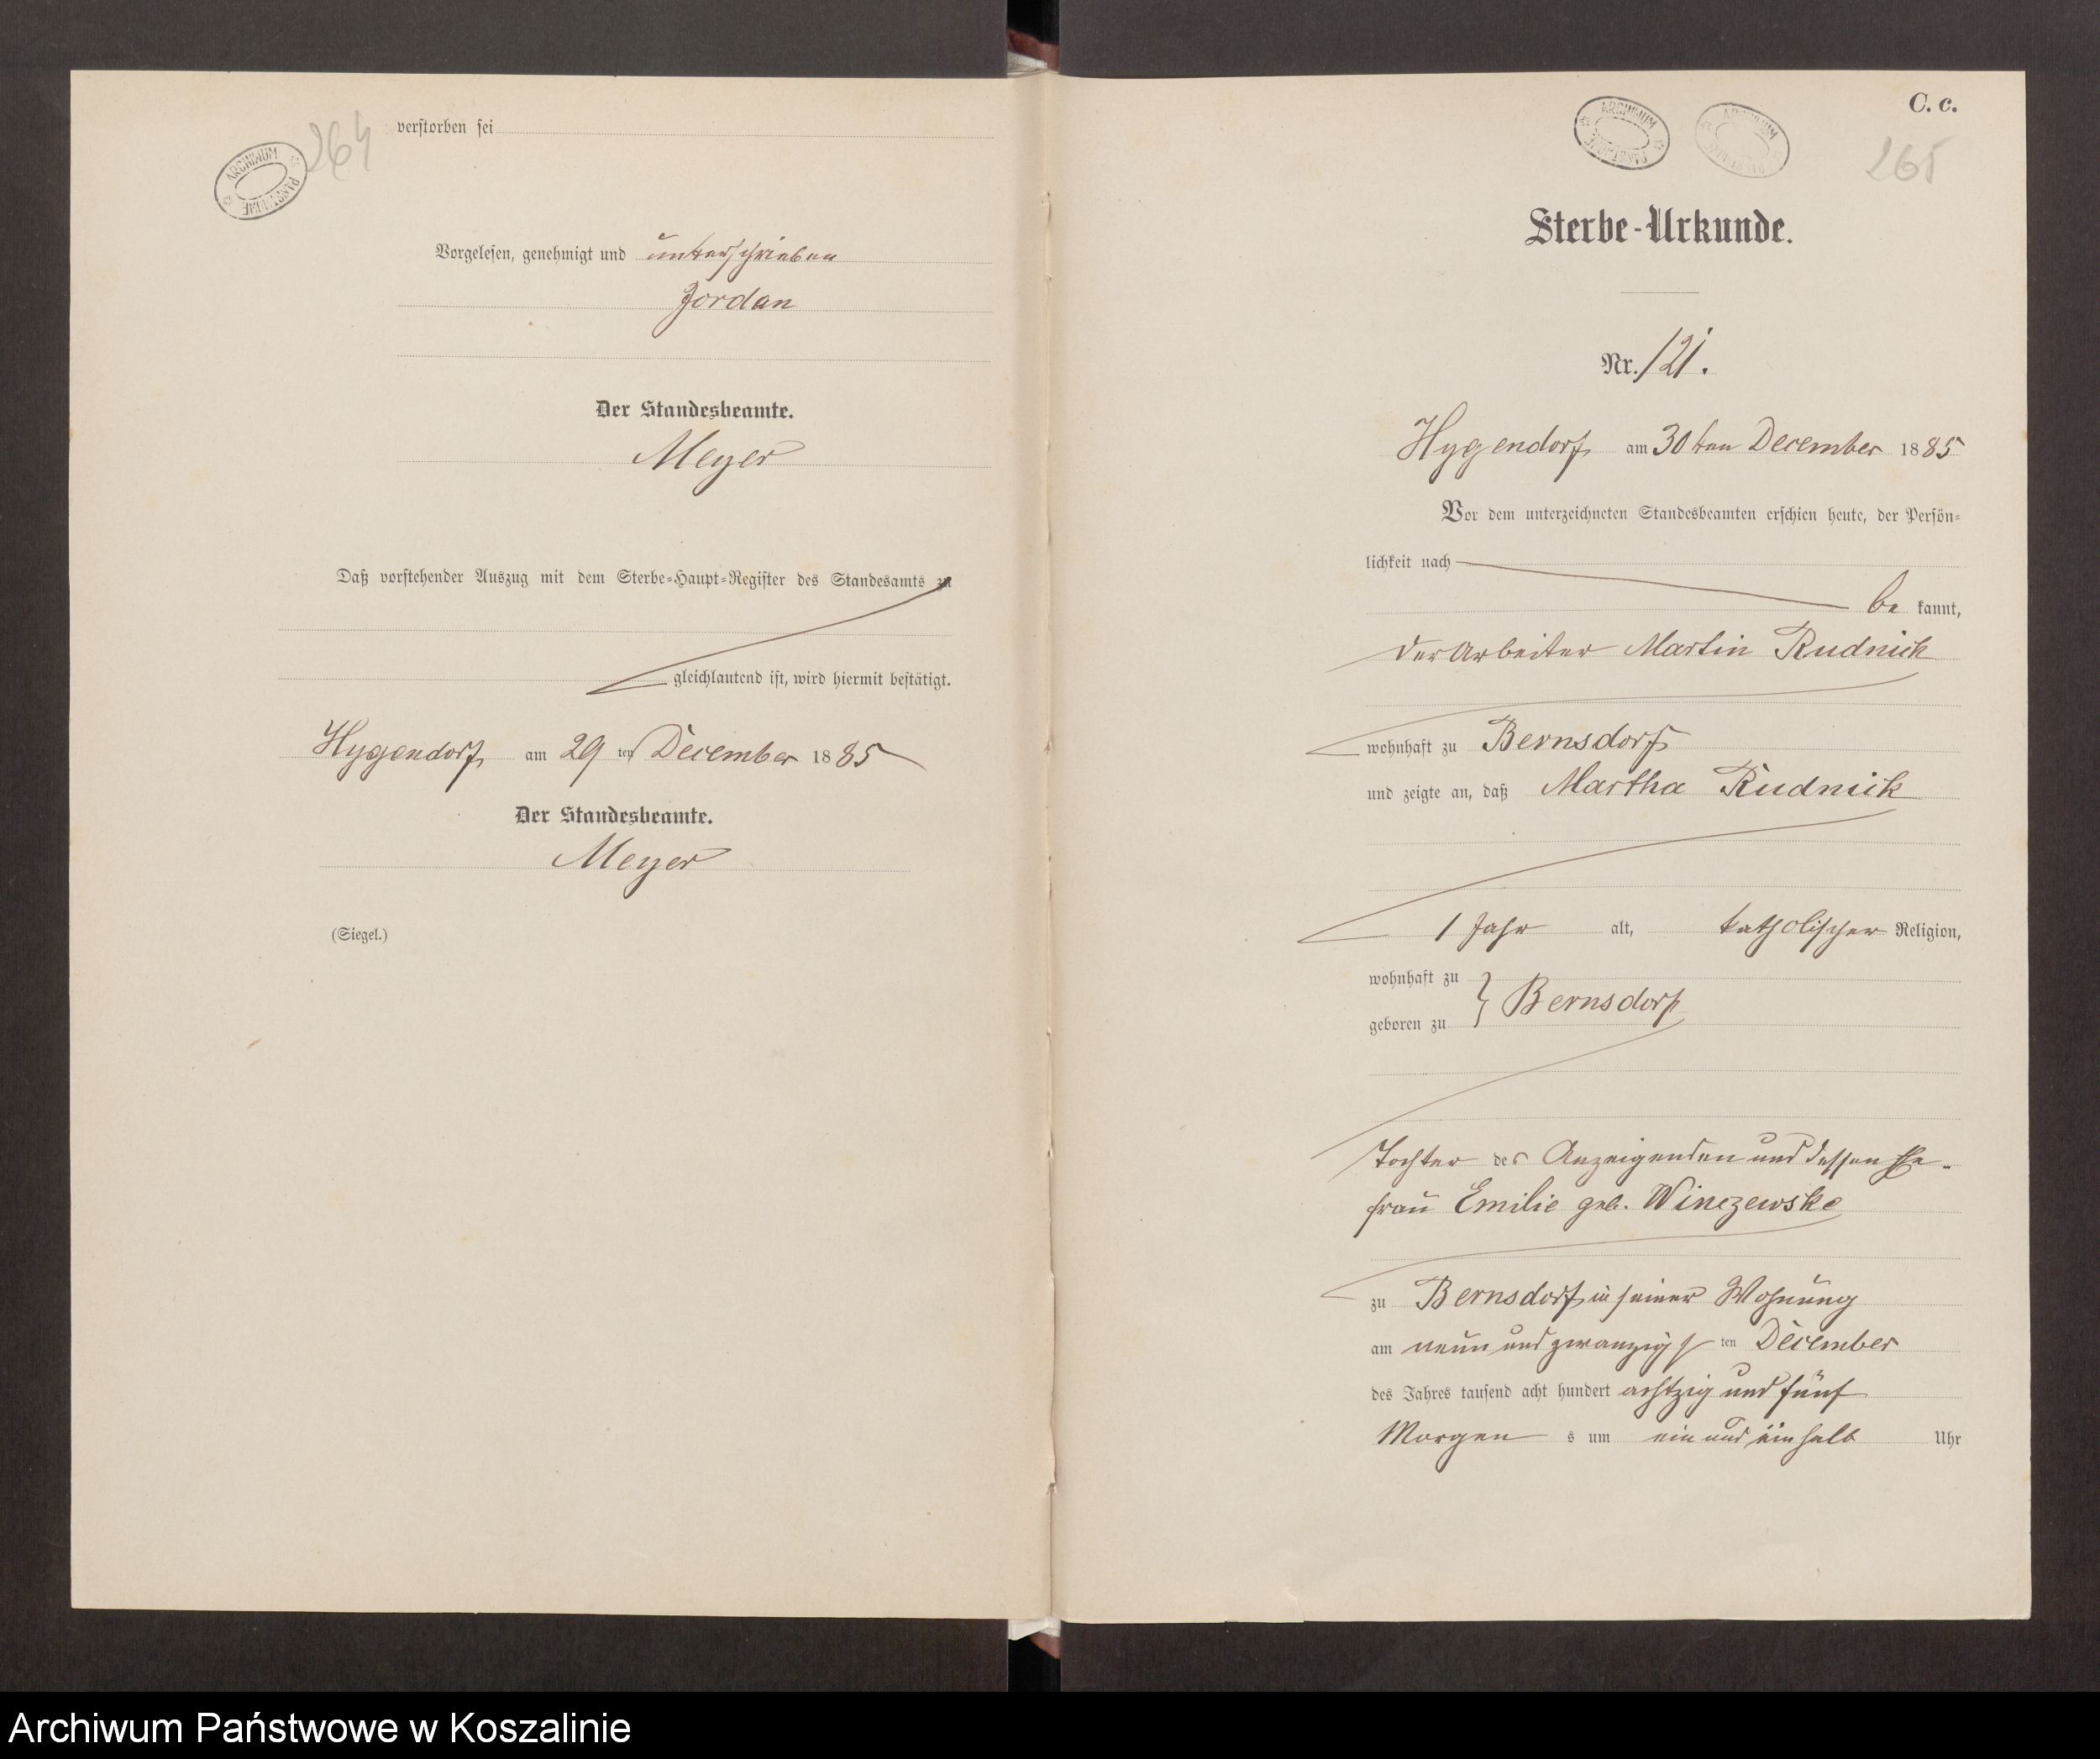 264
ARCHIWUM PAŃSTWOWE
verstorben sei
Vorgelesen, genehmigt und unterschrieben
Jordan
Der Standesbeamte.
Meyer
Daß vorstehender Auszug mit dem Sterbe-Haupt-Register des Standesamts zu
gleichlautend ist, wird hiermit bestätigt.
Hygendorf am 29 ten December 1885
Der Standesbeamte.
Meyer
(Siegel.)
C. c.
ARCHIWUM PAŃSTWOWE
ARCHIWUM PAŃSTWOWE
265
Sterbe-Urkunde.
Nr. 121.
Hygendorf am 30ten December 1885
Vor dem unterzeichneten Standesbeamten erschien heute, der Persön-
lichkeit nach
be kannt,
der Arbeiter Martin Rudnick
wohnhaft zu Bernsdorf
und zeigte an, daß Martha Rudnick
1 Jahr alt, katholischer Religion,
wohnhaft zu
geboren zu } Bernsdorf
Tochter des Anzeigenden und dessen Ehe-
frau Emilie geb. Winczewske
zu Bernsdorf in seiner Wohnung
am neun und zwanzigs ten December
des Jahres tausend acht hundert achtzig und fünf
Morgen s um ein und ein halb Uhr
Archiwum Państwowe w Koszalinie